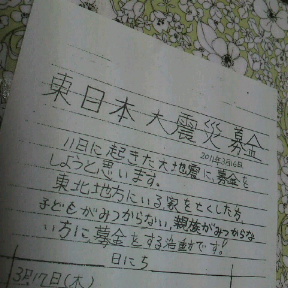 東日本大震災募金
2011年3月16日
11日に起きた大地震に、募金を
しようと思います。
東北地方にいる家をなくした方、
子どもがみつからない、親族がみつからな
い方に、募金をする活動です!
日にち
3月17日(木)